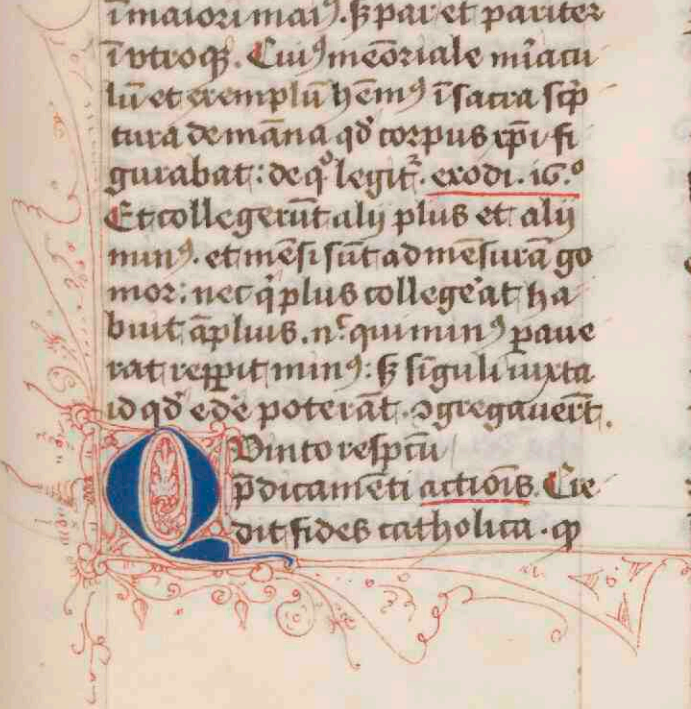 ī maiori maiꝰ. sꝫ par et pariter
ī vtroqꝫ. Cuiꝰ mēoriale mīacu
lū et exemplū hēmꝰ ī sacra sc̄p
tura de māna qd̄ corpus xp̄i fi
gurabat: de qͦ legit᷑. exodi. 16.º
Et collegerūt alij plus et alij
minꝰ. et mēsi sūt ad mēsurā go
mor: nec qͥ plus collegeͣat ha
buit āplius. n̄c qui minꝰ paue
rat repp̄it minꝰ: sꝫ sīguli iuxta
id qd̄ edē poterāt ꝯgregauer̄t.
Quinto respc̄u
p̄dicamēti actiōis. Cre
dit fides catholica. ꝙ